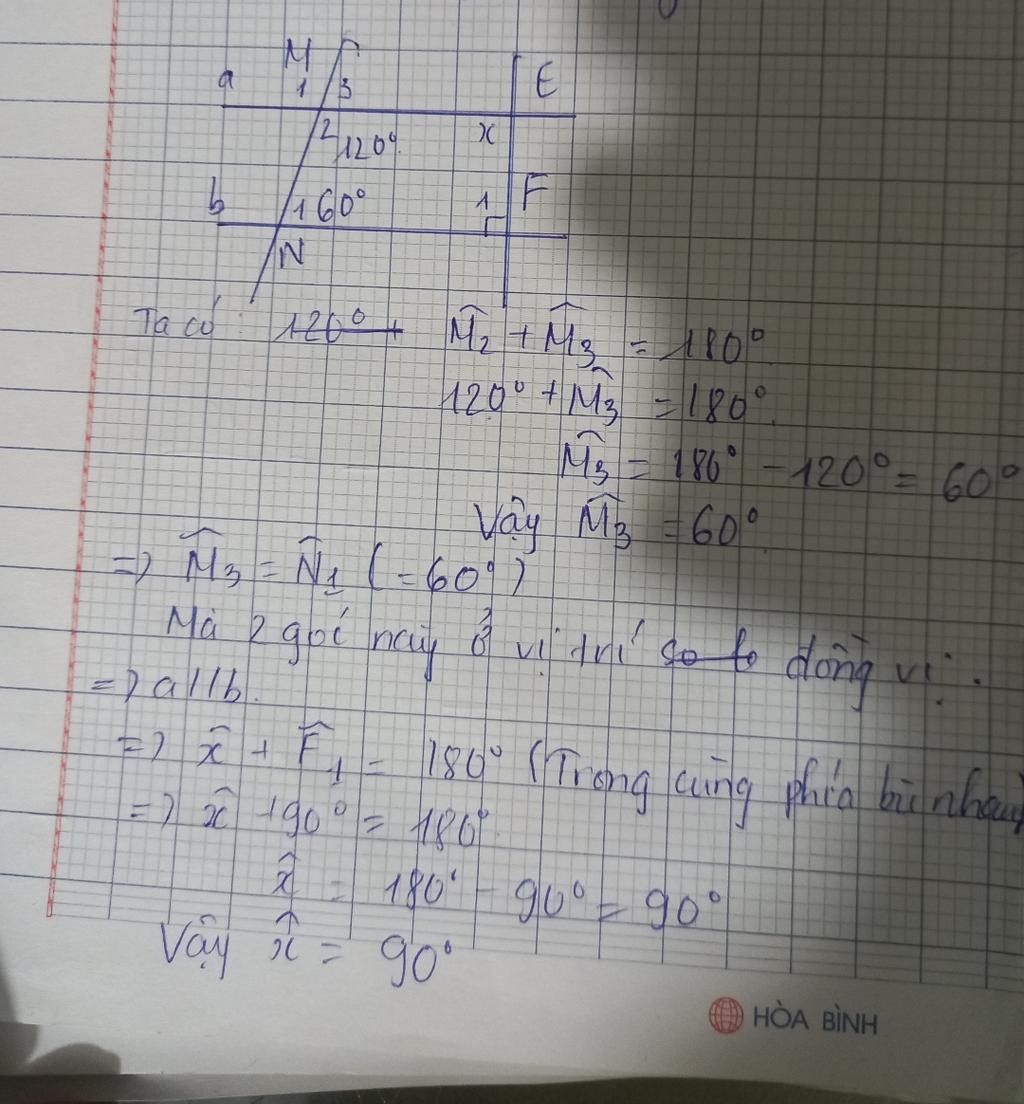 M
E
a
1
3
2
120°
x
b
1 60°
1
F
N
Ta có: 120° + M̂₂ + M̂₃ = 180°
120° + M̂₃ = 180°
M̂₃ = 180° - 120° = 60°
Vậy M̂₃ = 60°
=> M̂₃ = N̂₁ (=60°)
Mà 2 goí này ở vị trí so le đồng vị.
=> a//b.
=> x̂ + F̂₁ = 180° (Trong cùng phía bù nhau)
=> x̂ + 90° = 180°
x̂ = 180° - 90° = 90°
Vậy x̂ = 90°
HÒA BÌNH